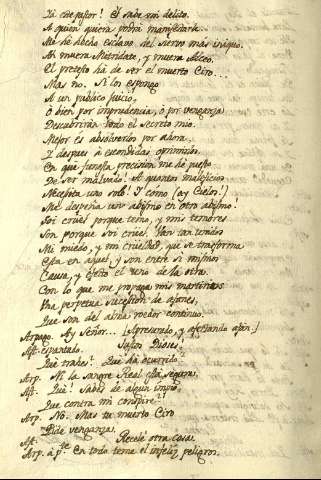 Yá este pastor! El sabe mi delito.
A quien quiera podrá manifestarle.
Me he hecho esclavo del siervo más iniquo.
Ah muera Mitridate, y muera Alceo.
El pretexto há de ser el muerto Ciro...
Mas no. Si los expongo
A un público juicio,
O bien por imprudencia, ó por venganza
Descubrirán todo el secreto mio.
Mejor es absolverlos por ahora.
Y despues á escondidas oprimirlos.
En que funesta precision me he puesto
De ser malvado! A quantos maleficios
Necesita uno solo! Y como (ay Cielos!)
Me despeña un abismo en otro abismo!
Soi cruel porque temo, y mis temores
Son porque soi cruel. Van tan unidos
Mi miedo, y mi crueldad, que se trasforma
Esta en aquel, y son entre si mismos
Causa, y efeto el uno de la otra.
Con lo que me propaga mis martirios
Una perpetua sucesion de afanes,
Que son del alma roedor continuo.
Arpago. Ay Señor... [Apresurado, y afectando afán.]
Ast. espantado. Justos Dioses!
Que trahes? Qué há ocurrido?
Arp. Ni la sangre Real está segura.
Ast. Qué! Sabes de algún impio,
Que contra mi conspire?
Arp. Nó: Mas tu muerto Ciro
Pide venganzas.
Ast. Recelé otra cosa.
Arp. á pte. En todo teme el infeliz peligros.